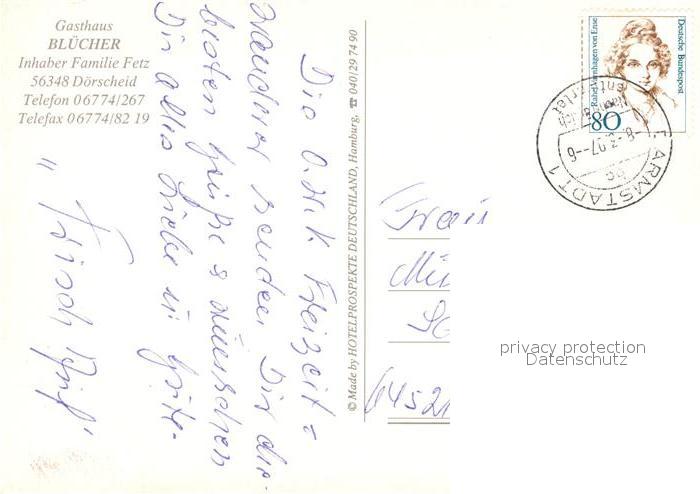 Gasthaus
BLÜCHER
Inhaber Familie Fetz
56348 Dörscheid
Telefon 06774/267
Telefax 06774/82 19
Die O.W.K. Freizeit =
wanderer senden Dir die
besten Grüße & wünschen
Dir alles Liebe u. Gute.
" Frisch Auf "
© Made by HOTELPROSPEKTE DEUTSCHLAND, Hamburg, ☎ 040/29 74 90
Rahel Varnhagen von Ense
Deutsche Bundespost
80
DARMSTADT 1
Frau
6452
privacy protection
Datenschutz